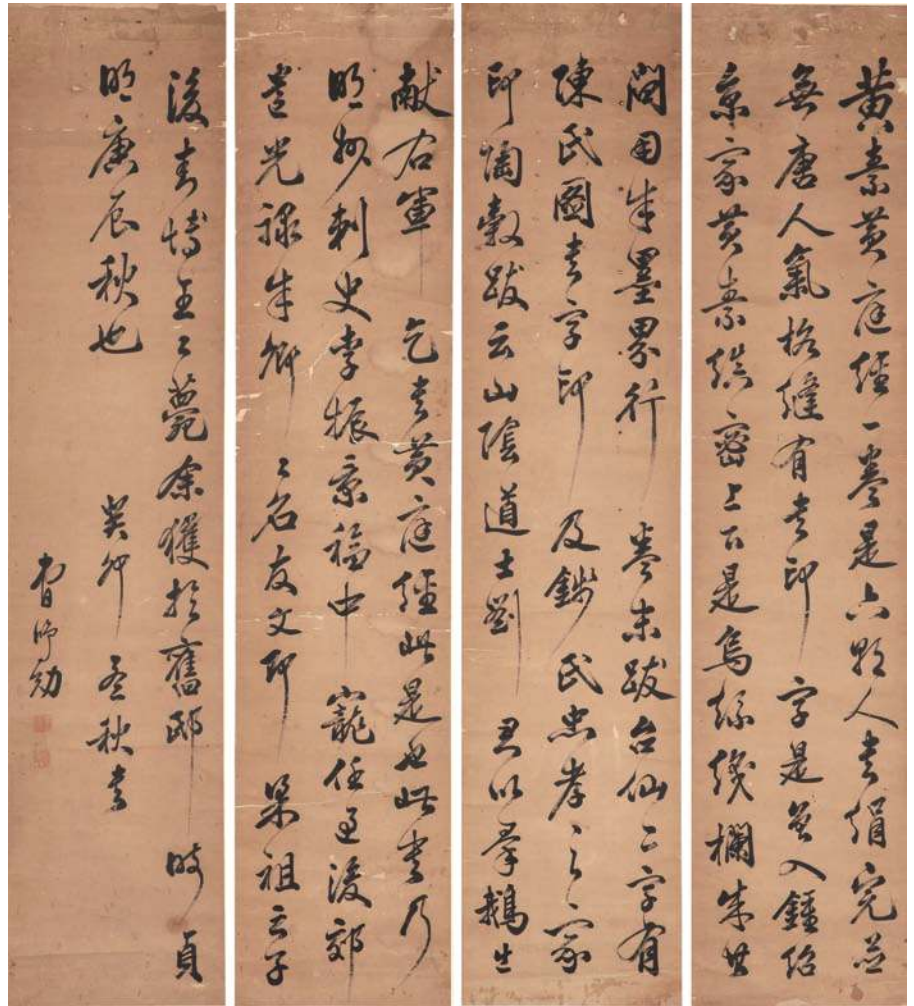 黄素黄庭經一卷是六朝人書絹完並
無唐人氣格縫有書印字是曾入鍾紹
京家黄素縝密上下是烏絲織欄其
間用朱墨界行卷末跋台仙二字有
陳氏圖書字印及錢氏忠孝之家
印陶穀跋云山陰道士劉君以羣鵝
獻右軍乞書黄庭經此是也此書乃
明州刺史李振景福中罷任過浚郊
遺光禄朱卿々名友文即梁祖之子
後封博王々薨余獲於舊邸時貞
明庚辰秋也癸卯孟秋書
曹